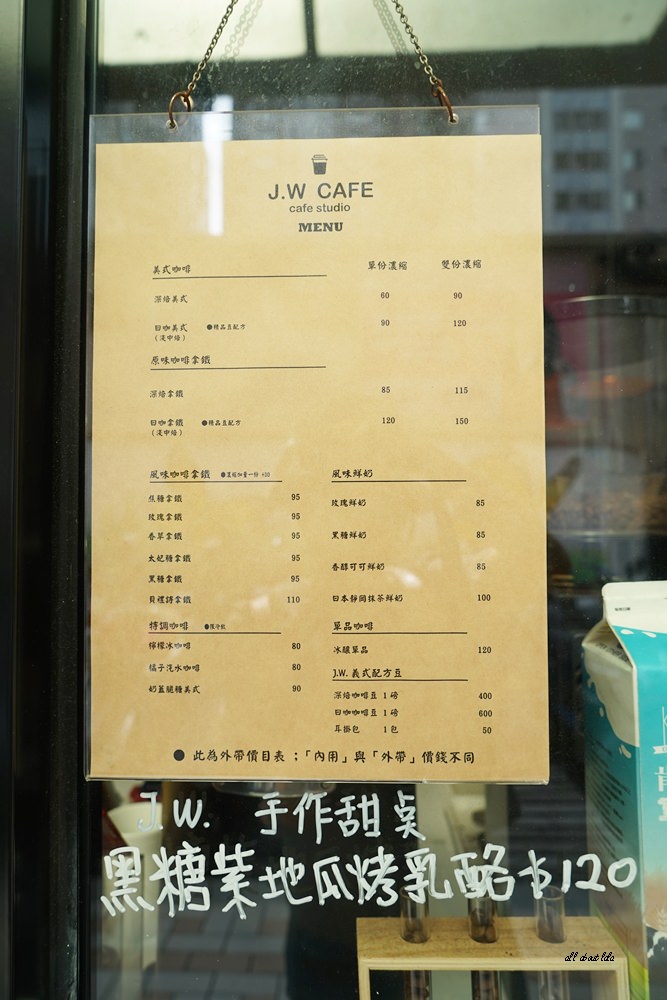 J.W CAFE
cafe studio
MENU
美式咖啡 單份濃縮 雙份濃縮
深焙美式 60 90
日咖美式 ●精品豆配方 90 120
(淺中焙)
原味咖啡拿鐵
深焙拿鐵 85 115
日咖拿鐵 ●精品豆配方 120 150
(淺中焙)
風味咖啡拿鐵 ●濃縮加量一份 +30
焦糖拿鐵 95
玫瑰拿鐵 95
香草拿鐵 95
太妃糖拿鐵 95
黑糖拿鐵 95
貝禮詩拿鐵 110
特調咖啡 ●限冷飲
檸檬冰咖啡 80
橘子汽水咖啡 80
奶蓋脆糖美式 90
風味鮮奶
玫瑰鮮奶 85
黑糖鮮奶 85
香醇可可鮮奶 85
日本靜岡抹茶鮮奶 100
單品咖啡
冰釀單品 120
J.W. 義式配方豆
深焙咖啡豆 1 磅 400
日咖咖啡豆 1 磅 600
耳掛包 1 包 50
● 此為外帶價目表 ;「內用」與「外帶」價錢不同
J.W. 手作甜點
黑糖紫地瓜烤乳酪$120
all about lida